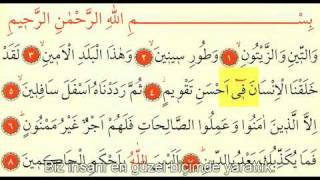 بِسْمِ اللهِ الرَّحْمٰنِ الرَّحِيمِ
وَالتِّينِ وَالزَّيْتُونِ ﴿١﴾ وَطُورِ سِينِينَ ﴿٢﴾ وَهٰذَا الْبَلَدِ الْاَمِينِ ﴿٣﴾ لَقَدْ
خَلَقْنَا الْاِنْسَانَ فٖٓى اَحْسَنِ تَقْوِيمٍ ﴿٤﴾ ثُمَّ رَدَدْنَاهُ اَسْفَلَ سَافِلِينَ ﴿٥﴾
اِلَّا الَّذِينَ اٰمَنُوا وَعَمِلُوا الصَّالِحَاتِ فَلَهُمْ اَجْرٌ غَيْرُ مَمْنُونٍ ﴿٦﴾
فَمَا يُكَذِّبُكَ بَعْدُ بِالدِّينِ ﴿٧﴾ اَلَيْسَ اللهُ بِاَحْكَمِ الْحَاكِمِينَ ﴿٨﴾
Biz insanı en güzel biçimde yarattık.